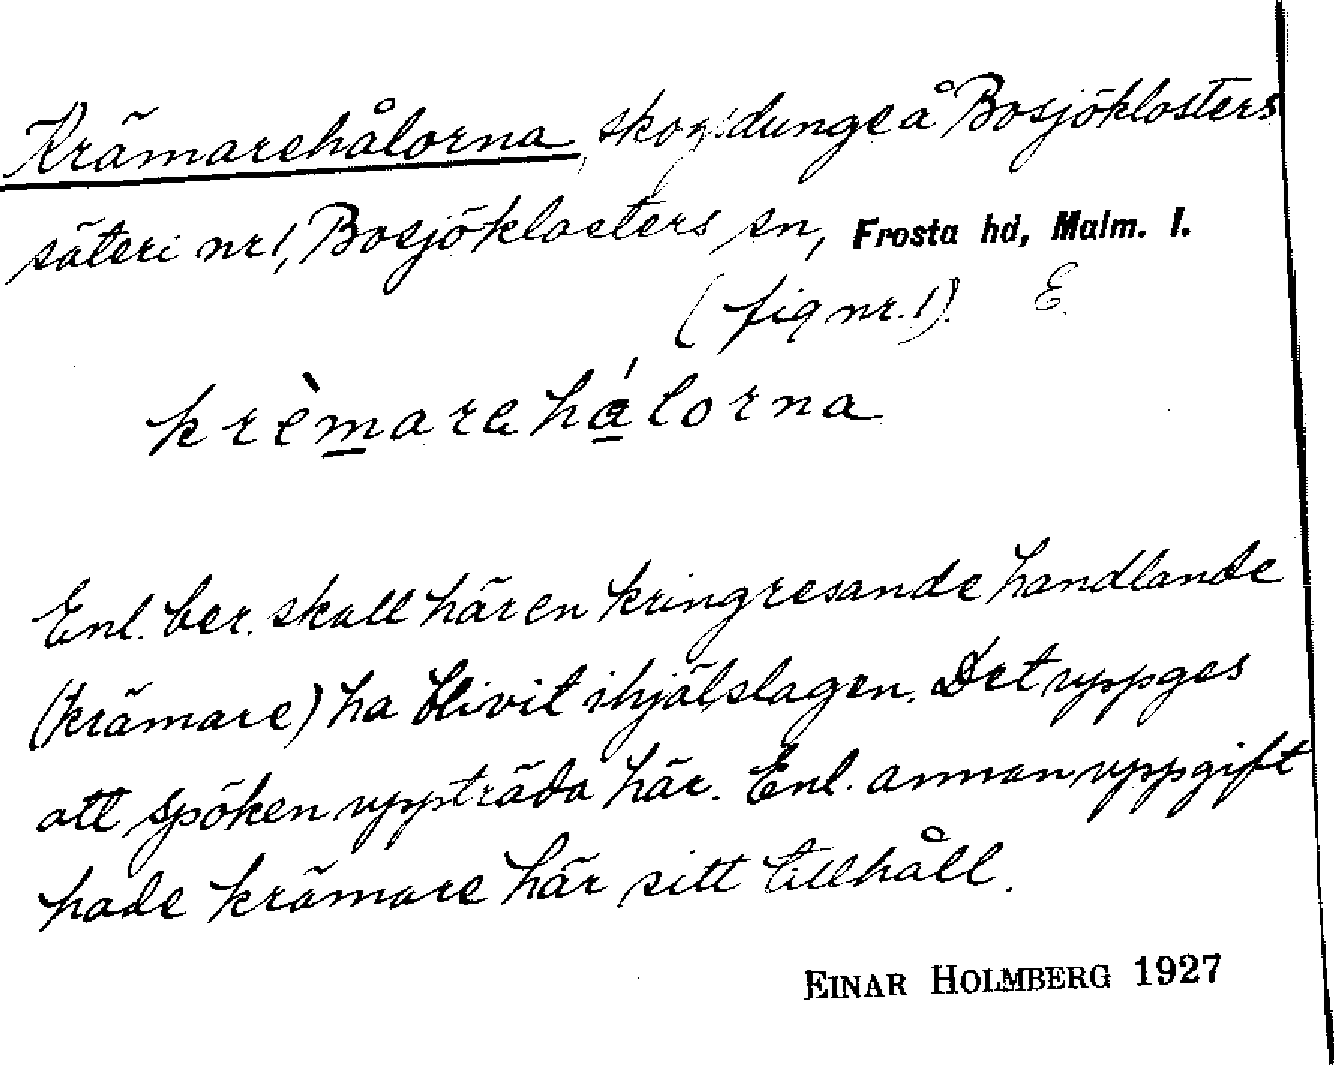 Krämarehålorna, skogsdunge å Bosjöklosters
säteri nr 1, Bosjöklosters sn, Frosta hd, Malm. l.
(fig nr. 1). E.
krèmarehálorna
Enl. ber. skall här en kringresande handlande
(krämare) ha blivit ihjälslagen. Det uppges
att spöken uppträda här. Enl. annan uppgift
hade krämare här sitt tillhåll.
EINAR HOLMBERG 1927